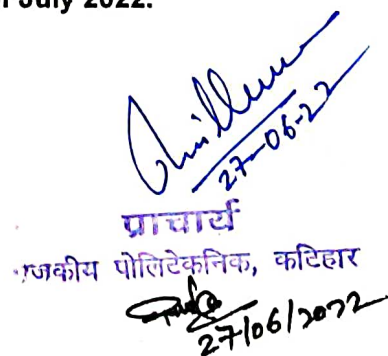 f July 2022.
27-06-22
प्राचार्य
राजकीय पोलिटेकनिक, कटिहार
27/06/2022